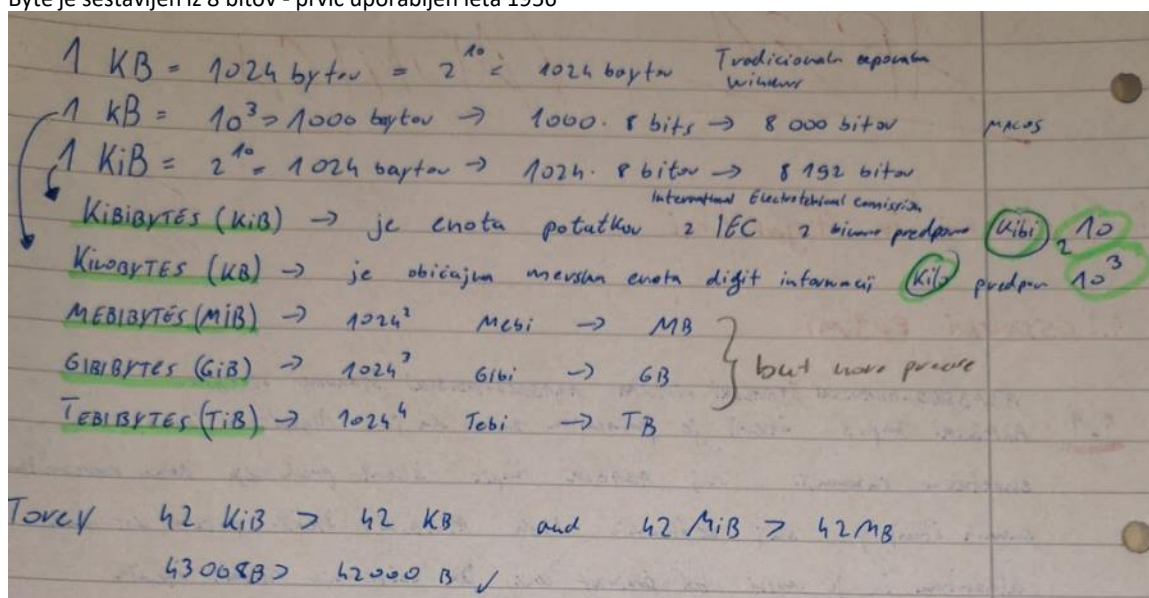 Byte je sestavljen iz 8 bitov - prvič uporabljen leta 1956
1 KB = 1024 bytov = 2^10 = 1024 baytov Tradicionaln
1 kB = 10^3 = 1000 baytov → 1000 · 8 bits → 8 000 bitov MACOS
1 KiB = 2^10 = 1024 baytov → 1024 · 8 bitov → 8 192 bitov
International Electrotehical Comission
KIBIBYTES (KiB) → je enota potatkov z IEC z predpono Kibi 2^10
KILOBYTES (KB) → je običajna merska enota digit informacij Kilo predpon 10^3
MEBIBYTES (MiB) → 1024^2 Mebi → MB
GIBIBYTES (GiB) → 1024^3 Gibi → GB } but more precise
TEBIBYTES (TiB) → 1024^4 Tebi → TB
Torej 42 KiB > 42 KB and 42 MiB > 42 MB
43008B > 42000 B ✓